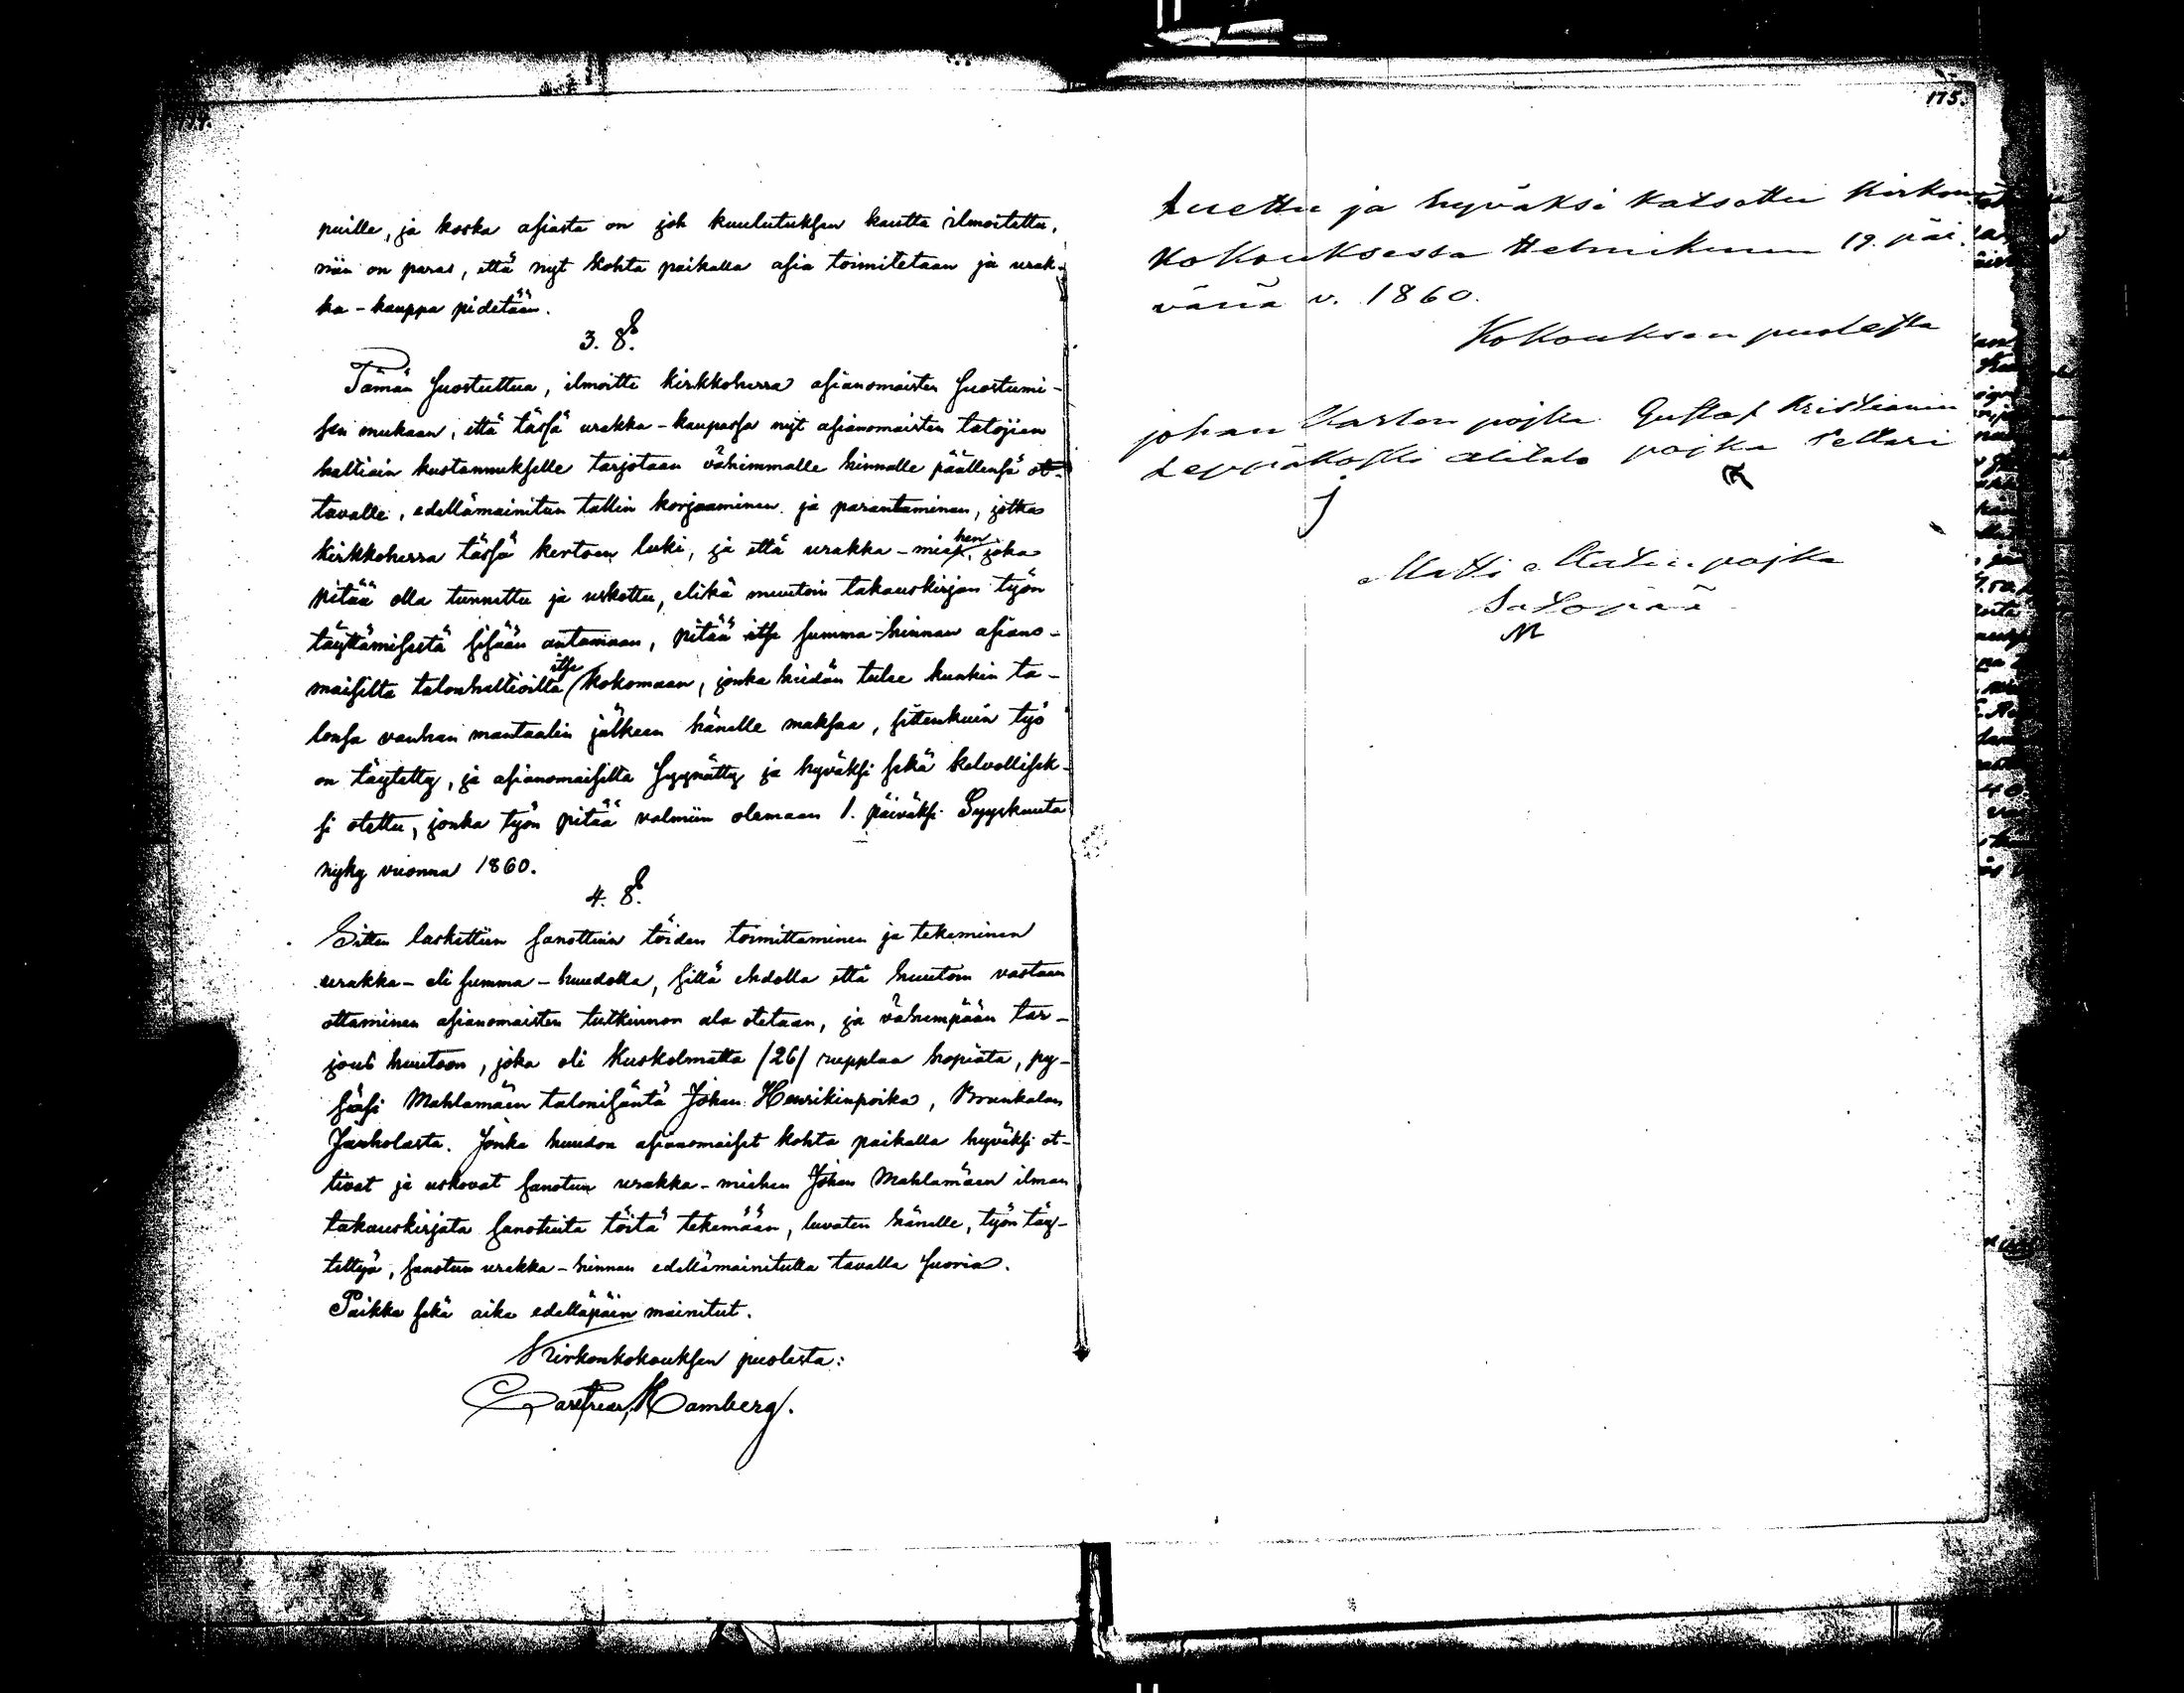 puille, ja koska asiasta on joh kuulutuksen kautta ilmoitettu,
niin on paras, että nyt kohta paikalla asia toimitetaan ja urak-
ka-kauppa pidetään.
3. §.
Tämän suostuttua, ilmoitti kirkkoherra asianomaisten suostumi-
sen mukaan, että tässä urakka-kaupassa nyt asianomaisten talojen
haltiain kustannukselle tarjotaan vähimmalle hinnalle päällensä ot-
tavalle, edellämainitun tallin korjaaminen ja parantaminen, jotka
kirkkoherra tässä kertoen luki, ja että urakka-miehen, joka
pitää olla tunnettu ja uskottu, elikä muutoin takauskirjan työn
täyttämisestä sisään antamaan, pitää itse summa-hinnan asiano-
maisilta talonhaltioilta itse kokomaan, jonka heidän tulee kunkin ta-
lonsa vanhan mantaalin jälkeen hänelle maksaa, sittenkuin työ
on täytetty, ja asianomaisilta syynätty ja hyväksi sekä kelvollisek-
si otettu, jonka työn pitää valmiin olemaan 1. päiväksi Syyskuuta
nyky vuonna 1860.
4. §.
Sitten laskettiin sanottuin töiden toimittaminen ja tekeminen
urakka- eli summa-huudolla, sillä ehdolla että huutoin vastaan
ottaminen asianomaisten tutkinnon ala otetaan, ja vähempään tar-
jout huutoon, joka oli kuskolmatta /26/ rupplaa hopiata, py-
säsi Mahlamäen talonisäntä Johan Henrikinpoika,
Janholasta. Jonka huudon asianomaiset kohta paikalla hyväksi ot-
tivat ja uskovat sanotun urakka-miehen Johan Mahlamäen ilman
takauskirjata sanotuita töitä tekemään, luvaten hänelle, työn täy-
tettyä, sanotun urakka-hinnan edellämainitulla tavalla suoria.
Paikka sekä aika edelläpäin mainitut.
Kirkonkokouksen puolesta:
Hamberg.
175.
Luettu ja hyväksi katsottu Kirkon
Kokouksessa Helmikuun 19. päi-
vänä v. 1860.
Kokouksen puolesta
johan Karlen pojka Gustaf Kristianin
Leppäkoski Alitalo pojka Pettari
j
Matti Matin pojka
Salopää
M